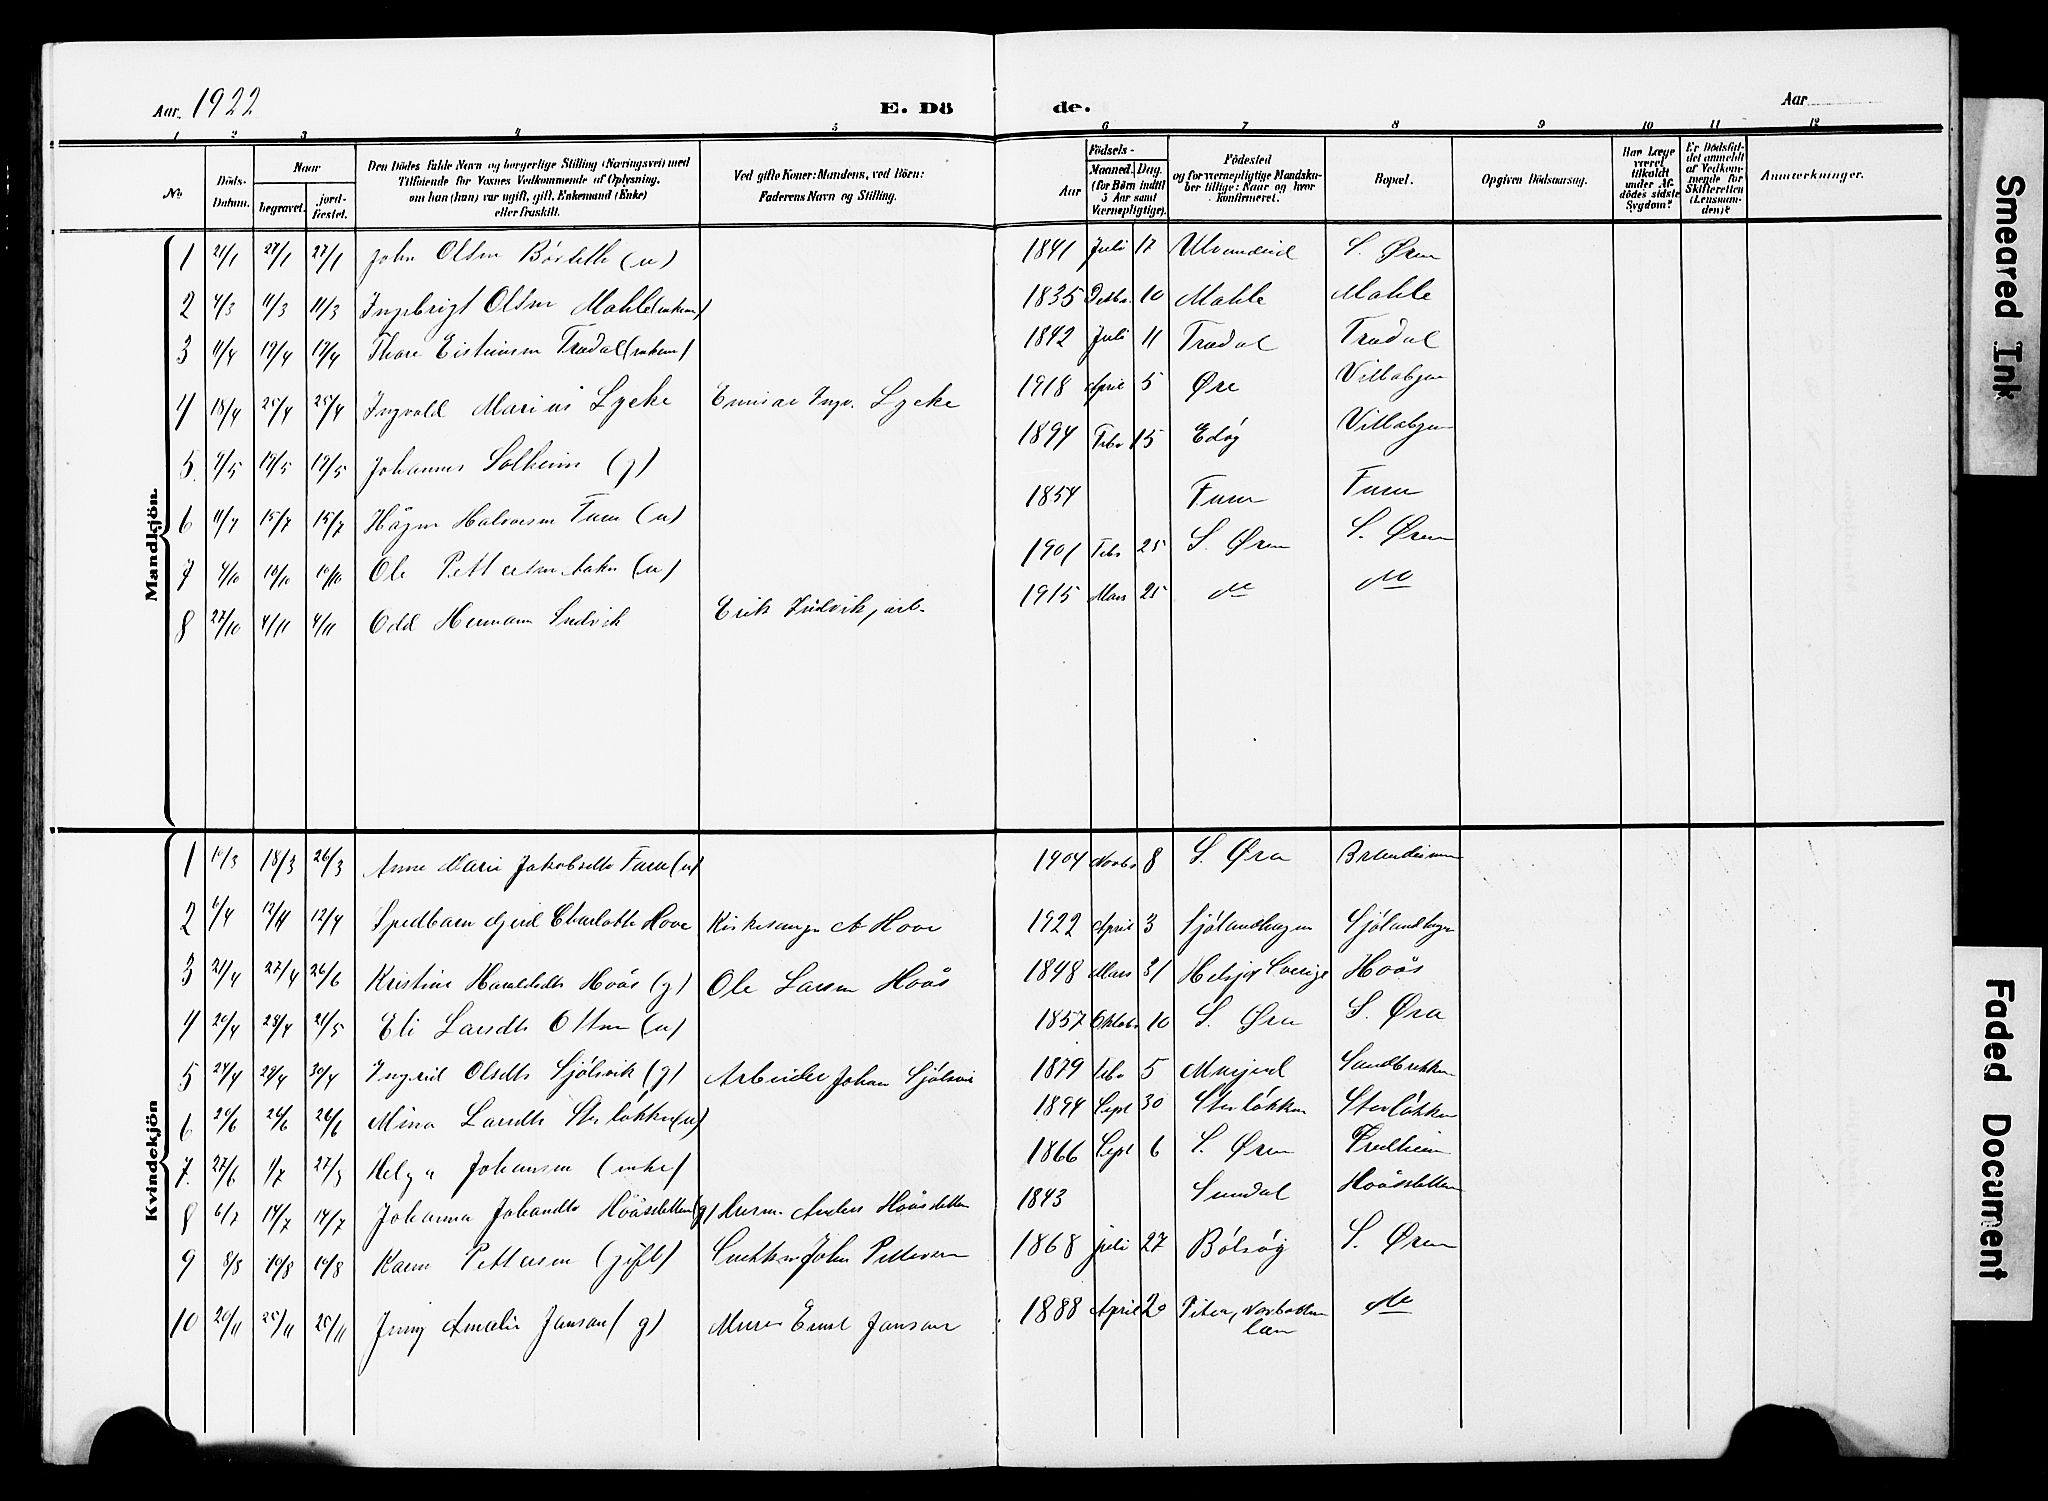 Aar. 1922 E. Dö de. Aar
1 2 3 4 5 6 7 8 9 10 11 12
No Döds-Datum. Naar begravet. jord-fæstet. Den Dödes fulde Navn og borgerlige Stilling (Næringsvei) med Tilföiende for Voxnes Vedkommende af Oplysning, om han (hun) var ugift, gift, Enkemand (Enke) eller fraskilt. Ved gifte Koner: Mandens, ved Börn: Faderens Navn og Stilling. Födsels- Aar Maaned. Dag. (for Börn indtil 5 Aar samt Værnepligtige). Födested og for værnepligtige Mandskaber tillige: Naar og hvor konfirmeret. Bopæl. Opgiven Dödsaarsag. Har Læge været tilkaldt under Afdödes sidste Sygdom? Er Dödsfaldet anmeldt af Vedkommende for Skifteretten (Lensmanden)? Anmærkninger.
Mandkjön.
1 21/1 27/1 27/1 John Olsen (u) 1841 Juli 17 S. Ören
2 4/3 11/3 11/3 Ingebrigt Olsen Mahle (enkem) 1835 10 Mahle Mahle
3 11/4 19/4 19/4 Thore Eisteinsen Trædal (enkem) 1842 Juli 11 Trædal Trædal
4 18/4 25/4 25/4 Ingvald Marius Lycke Ingv. Lycke 1918 April 5 Øre
5 9/5 19/5 19/5 Johannes Solheim (g) 1894 Febr 15 Edöy
6 11/7 15/7 15/7 Halvorsen Furu (u) 1854 Furu Furu
7 4/10 10/10 10/10 Ole Pettersen (u) 1901 Febr 25 S. Ören S. Ören
8 27/10 4/11 4/11 Odd Hermann Erik 1915 Mars 25 do do
Kvindekjön
1 10/3 18/3 26/3 Anne Marie Jakobsdtr Furu (u) 1904 Novbr 8 S. Öra
2 11/4 12/4 12/4 Spedbarn Charlotte Hove Kirkesanger A Hove 1922 April 3
3 21/4 27/4 26/6 Kristine Hoås (g) Ole Larsen Hoås 1848 Mars 31 Sverige Hoås
4 20/4 28/4 21/5 Eli Larsdtr Olsen (u) 1857 Oktobr 10 S. Öra S. Öra
5 24/4 29/4 30/4 Ingrid Olsdtr Sjölsvik (g) Arbeider Johan Sjölsvik 1879 Febr 5
6 20/6 26/6 26/6 Mina Larsdtr Storlökken (u) 1894 Sept 30 Storlökken Storlökken
7. 27/6 1/7 Helga Johansen (enke) 1866 Sept 6 S. Ören Fredheim
8 6/7 14/7 14/7 Johanna Johansdtr Hoåssletten (g) Anders Hoåssletten 1843 Sundal Hoåssletten
9 8/8 10/8 10/8 Karen Pettersen (gift) Snekker John Pettersen 1868 juli 27 Bolsöy S. Ören
10 20/11 25/11 25/11 Jenny Amalie Janson (g) Murer Ernst Janson 1888 April 20 Pitea, Norbotten læn do
Smeared Ink
Faded Document